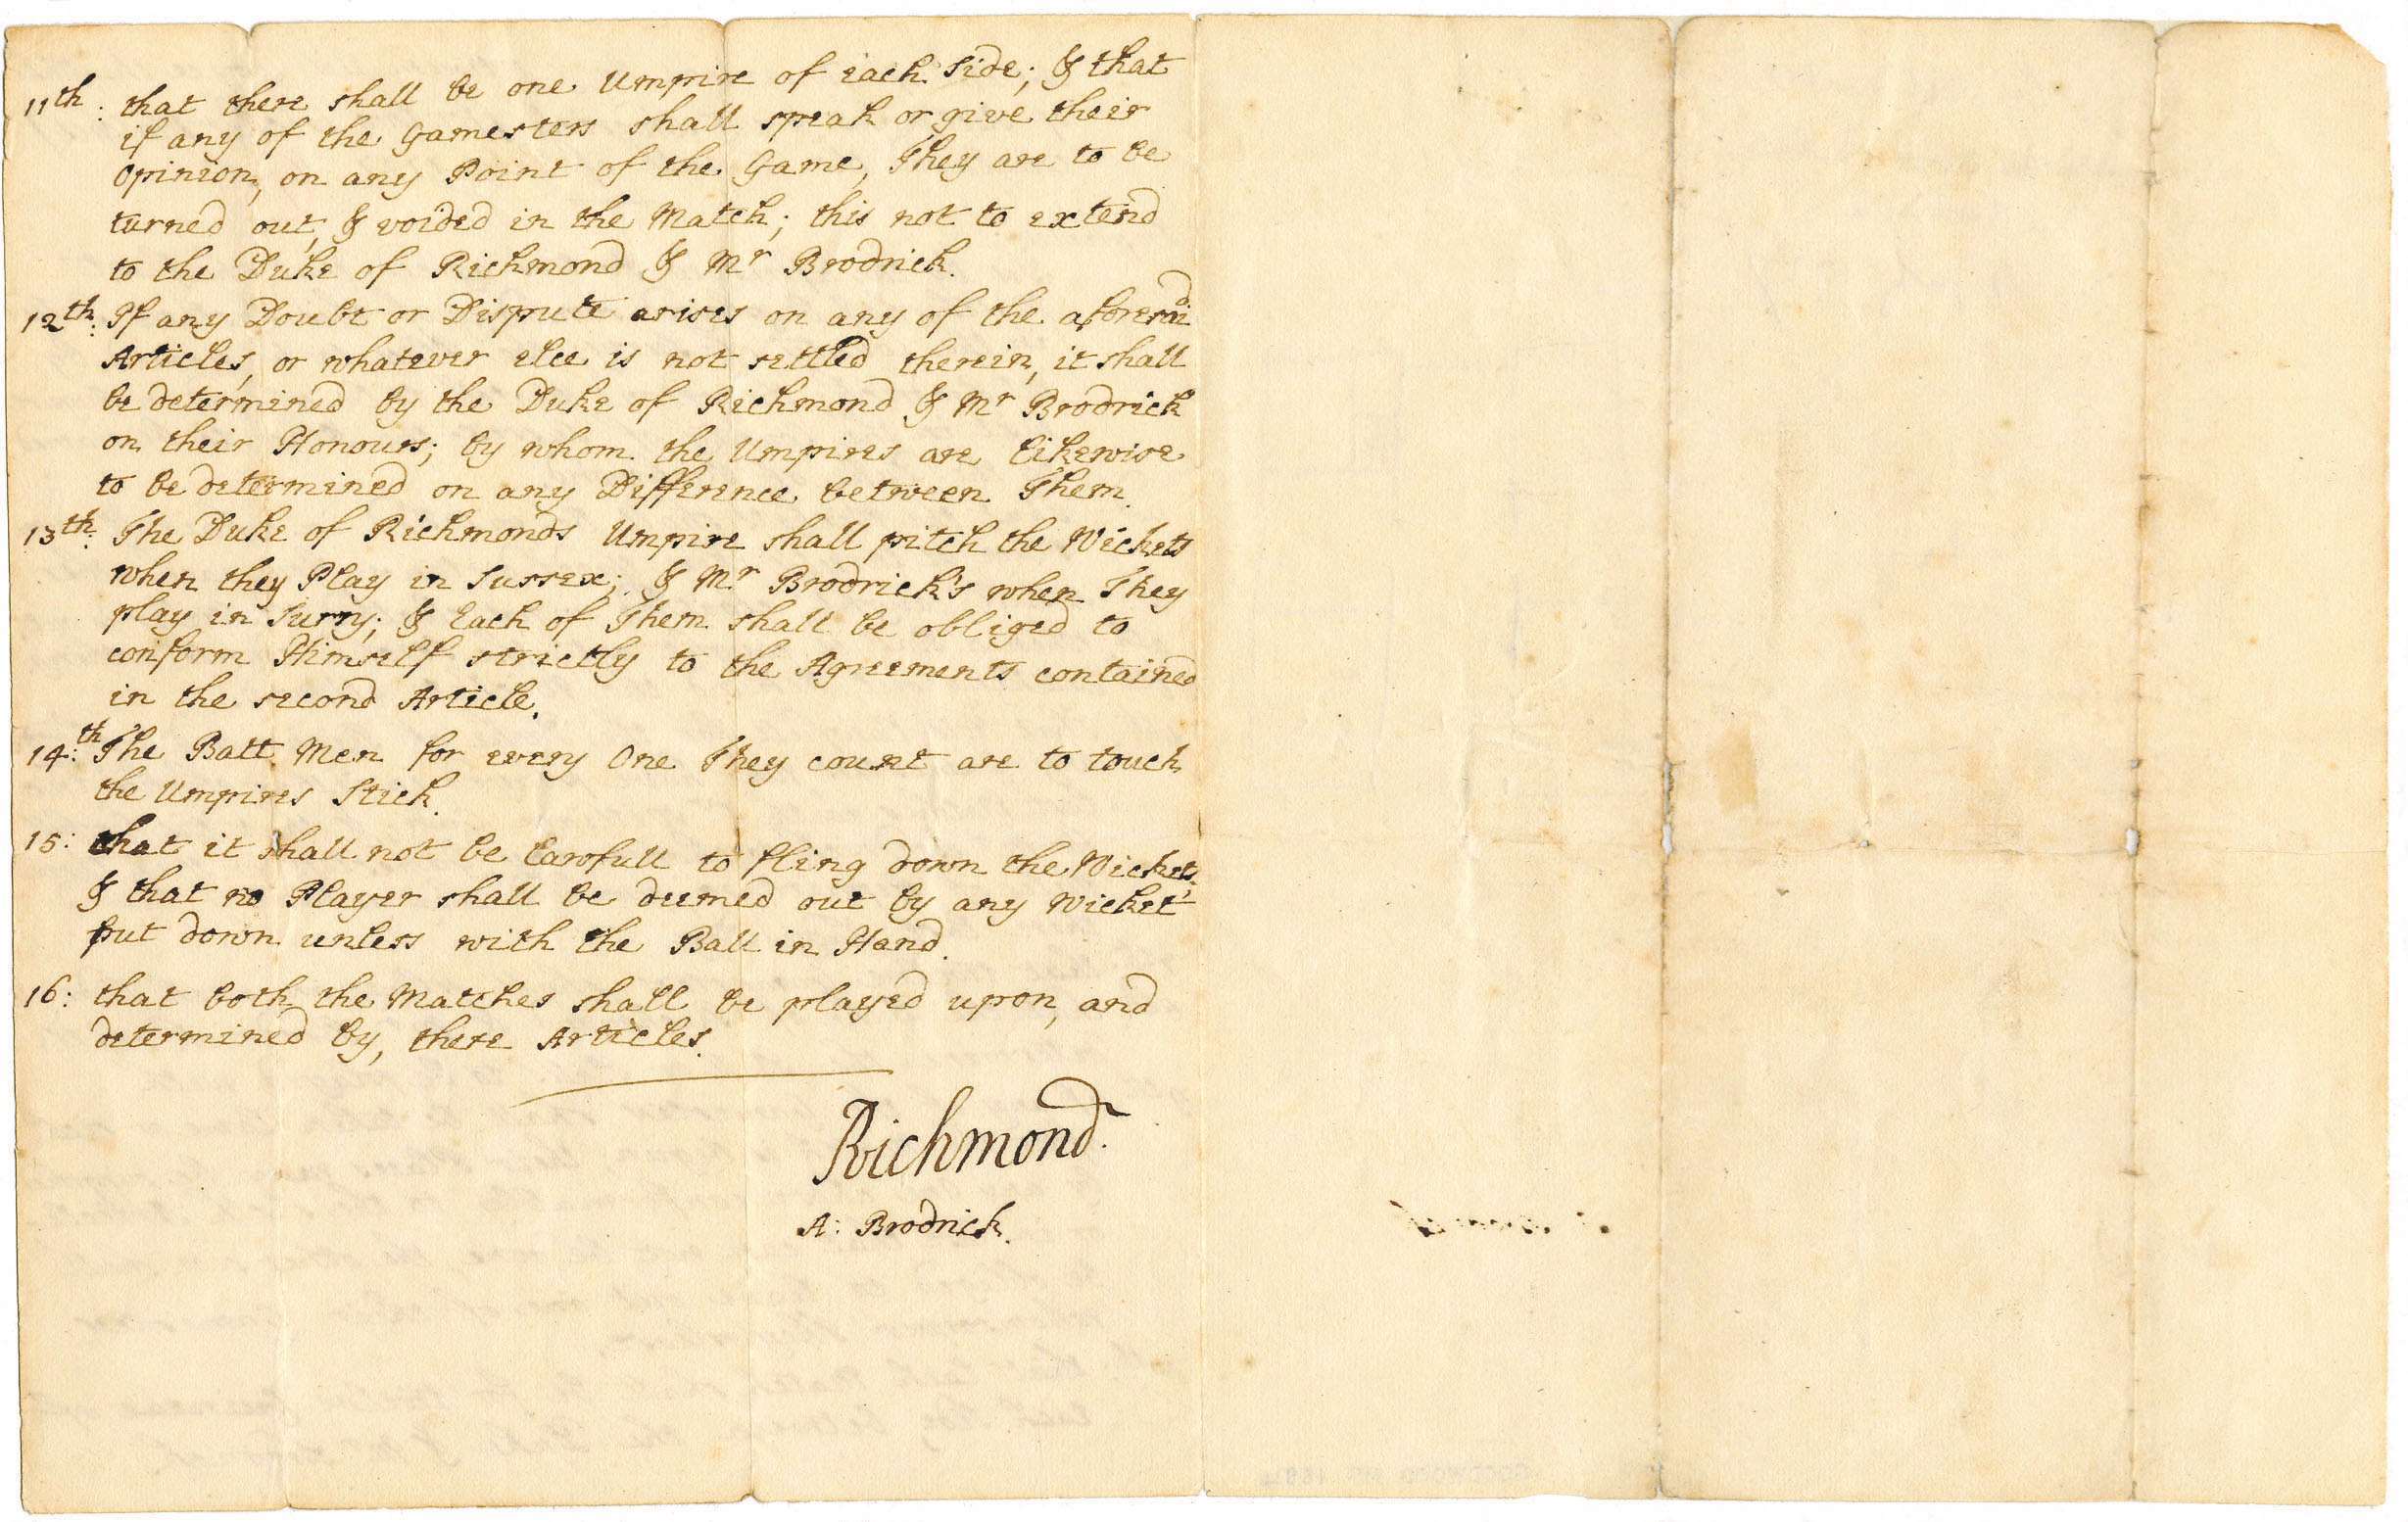 11th: that there shall be one Umpire of each side; & that
if any of the Gamesters shall speak or give their
Opinion, on any Point of the Game, They are to be
turned out, & voided in the Match; this not to extend
to the Duke of Richmond & Mr Brodrick.
12th: If any Doubt or Dispute arises on any of the aforesaid
Articles, or whatever else is not settled therein, it shall
be determined by the Duke of Richmond & Mr Brodrick
on their Honours; by whom the Umpires are likewise
to be determined on any Difference between Them.
13th: The Duke of Richmonds Umpire shall pitch the Wickets
when they Play in Sussex; & Mr Brodrick's when They
play in Surry; & Each of Them shall be obliged to
conform Himself strictly to the Agreements contained
in the second Article.
14:th The Batt Men for every One They count are to touch
the Umpires Stick.
15: that it shall not be lawfull to fling down the Wickets,
& that no Player shall be deemed out by any Wicket
put down unless with the Ball in Hand.
16: that both the Matches shall be played upon, and
determined by, these Articles.
Richmond.
A: Brodrick.